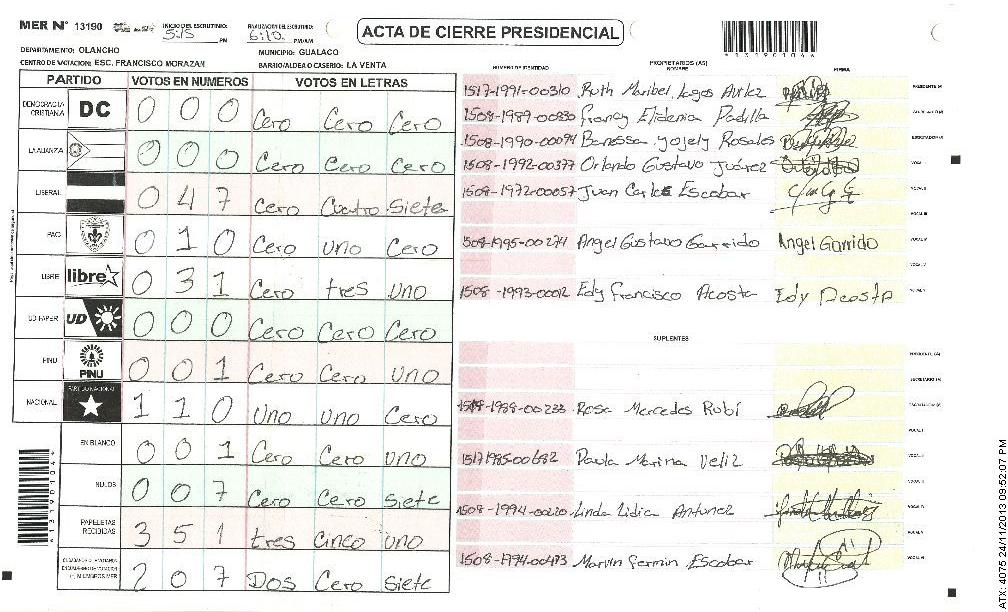 MER N° 13190 INICIO DEL ESCRUTINIO: 5:15 PM FINALIZACION DEL ESCRUTINIO: 6:10 PM/AM ACTA DE CIERRE PRESIDENCIAL
DEPARTAMENTO: OLANCHO MUNICIPIO: GUALACO
CENTRO DE VOTACION: ESC. FRANCISCO MORAZAN BARRIO/ALDEA O CASERIO: LA VENTA
PARTIDO VOTOS EN NUMEROS VOTOS EN LETRAS
DEMOCRACIA CRISTIANA DC 0 0 0 Cero Cero Cero
LA ALIANZA 0 0 0 Cero Cero Cero
LIBERAL 0 4 7 Cero Cuatro Siete
PAC 0 1 0 Cero uno Cero
LIBRE libre 0 3 1 Cero tres Uno
UD FAPER UD 0 0 0 Cero Cero Cero
PINU PINU 0 0 1 Cero Cero Uno
NACIONAL PARTIDO NACIONAL 1 1 0 Uno Uno Cero
EN BLANCO 0 0 1 Cero Cero uno
NULOS 0 0 7 Cero Cero Siete
PAPELETAS RECIBIDAS 3 5 1 tres Cinco uno
2 0 7 Dos Cero Siete
NUMERO DE IDENTIDAD PROPIETARIOS (AS) NOMBRE FIRMA
1517-1991-00310 Ruth Maribel Lagos PRESIDENTE (A)
1508-1989-00830 Francy Elidenia Padilla
1508-1990-00094 Banessa yojely Rosales
1508-1992-00377 Orlando Gustavo Juárez
1508-1972-00057 Juan Carlos Escobar
1508-1995-00274 Angel Gustavo Garrido Angel Garrido
1508-1993-0012 Edy Francisco Acosta Edy Acosta
SUPLENTES
1508-1989-00233 Rosa Mercedes Rubí
1517198500682 Paula Marina Veliz
1508-1994-00220 Linda Lidia Antunez
1508-1994-00473 Marvin Fermin Escobar
*13190104*
*13190104*
ATX: 4075 24/11/2013 09:52:07 PM